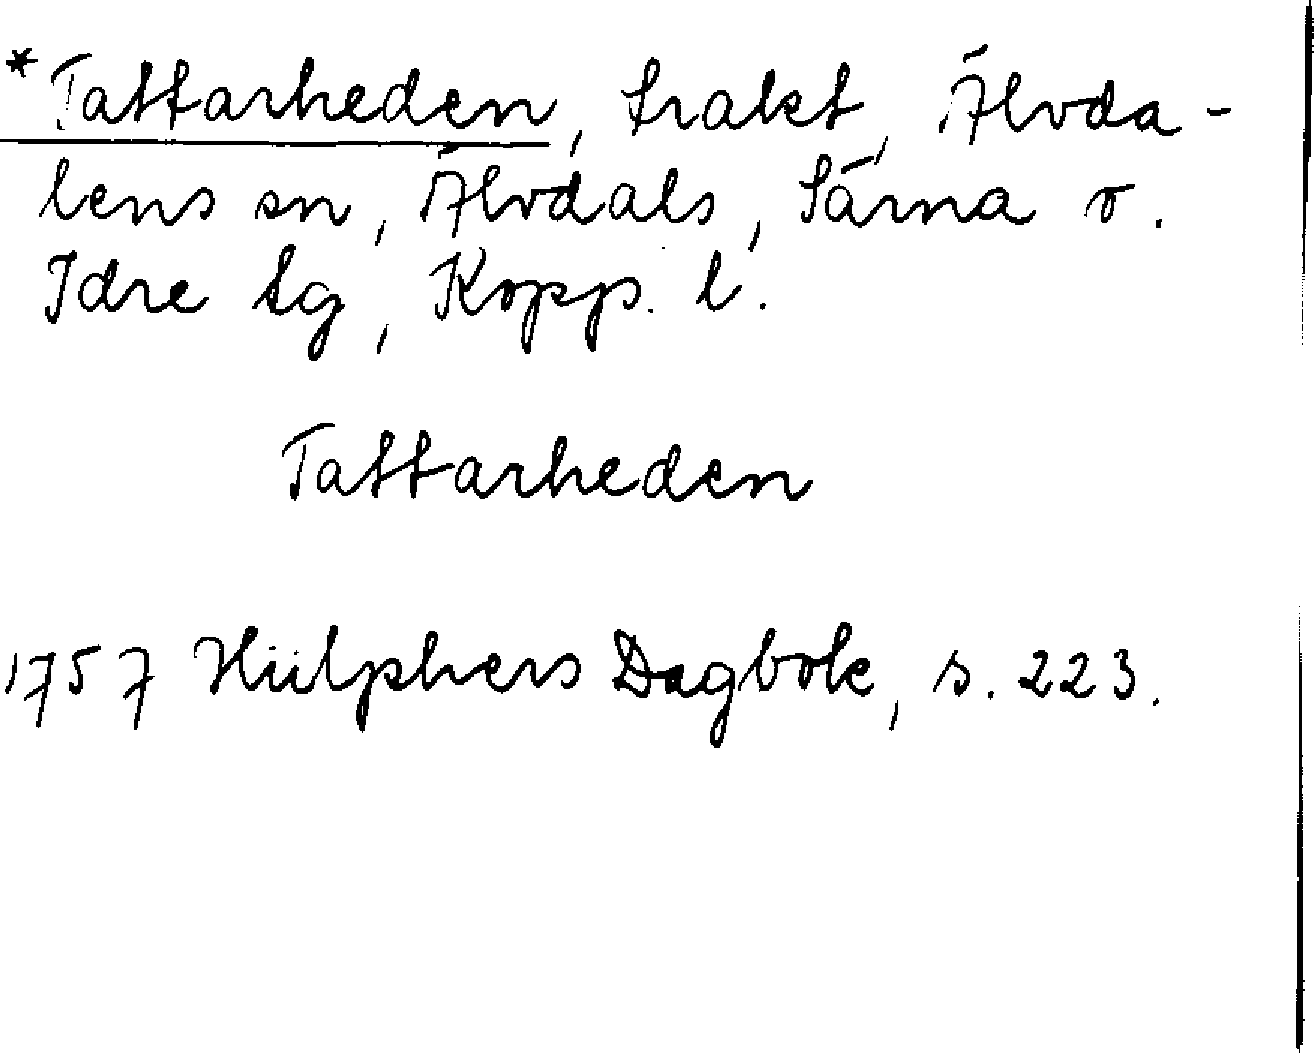 *Tattarheden, trakt, Älvda-
lens sn, Älvdals, Särna o.
Idre tg, Kopp. l.
Tattarheden
1757 Hülphers Dagbok, s. 223.